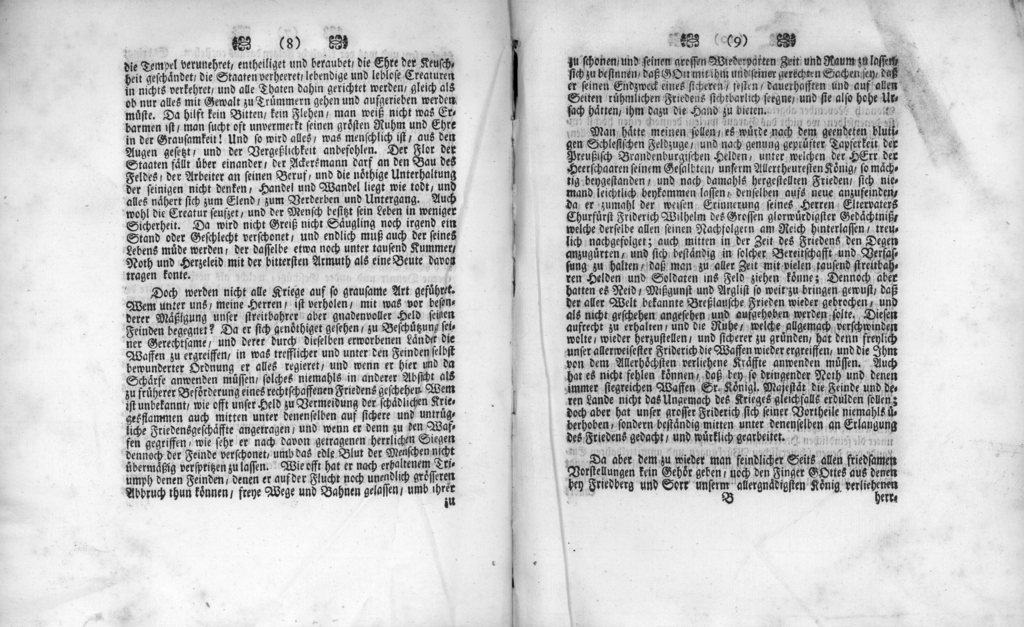 (8)
die Tempel verunehret, entheiliget und beraubet, die Ehre der Keusch-
heit geschändet, die Staaten verheeret, lebendige und leblose Creaturen
in nichts verkehret, und alle Thaten dahin gerichtet werden, gleich als
ob nur alles mit Gewalt zu Trümmern gehen und aufgerieben werden
müste. Da hilft kein Bitten, kein Flehen, man weiß nicht was Er-
barmen ist, man sucht oft unvermerkt seinen grösten Ruhm und Ehre
in der Grausamkeit! Und so wird alles, was menschlich ist, aus den
Augen gesetzt, und der Vergeßlichkeit anbefohlen. Der Flor der
Staaten fällt über einander, der Ackersmann darf an den Bau des
Feldes, der Arbeiter an seinen Beruf, und die nöthige Unterhaltung
der seinigen nicht denken, Handel und Wandel liegt wie todt, und
alles nähert sich zum Elend, zum Verderben und Untergang. Auch
wohl die Creatur seufzet, und der Mensch besitzt sein Leben in weniger
Sicherheit. Da wird nicht Greiß nicht Säugling noch irgend ein
Stand oder Geschlecht verschonet, und endlich muß auch der seines
Lebens müde werden, der dasselbe etwa noch unter tausend Kummer,
Noth und Herzeleid mit der bittersten Armuth als eine Beute davon
tragen konte.
Doch werden nicht alle Kriege auf so grausame Art geführet.
Wem unter uns, meine Herren, ist verholen, mit was vor beson-
derer Mäßigung unser streitbahrer aber gnadenvoller Held seinen
Feinden begegnet? Da er sich genöthiget gesehen, zu Beschützung sei-
ner Gerechtsame, und derer durch dieselben erworbenen Länder die
Waffen zu ergreiffen, in was trefflicher und unter den Feinden selbst
bewunderter Ordnung er alles regieret, und wenn er hier und da
Schärfe anwenden müssen, solches niemahls in anderer Absicht als
zu früherer Beförderung eines rechtschaffenen Friedens geschehen. Wem
ist unbekannt, wie offt unser Held zu Vermeidung der schädlichen Krie-
gesflammen auch mitten unter denenselben auf sichere und untrüg-
liche Friedensgeschäffte angetragen, und wenn er denn zu den Waf-
fen gegriffen, wie sehr er nach davon getragenen herrlichen Siegen
dennoch der Feinde verschonet, umb das edle Blut der Menschen nicht
übermäßig verspritzen zu lassen. Wie offt hat er nach erhaltenem Tri-
umph denen Feinden, denen er auf der Flucht noch unendlich grösseren
Abbruch thun können, freye Wege und Bahnen gelassen, umb ihrer
zu
(9)
zu schonen, und seinen grossen Wiederparten Zeit und Raum zu lassen,
sich zu besinnen, daß GOtt mit ihm und seiner gerechten Sachen sey, daß
er seinen Endzweck eines sicheren, festen, dauerhafften und auf allen
Seiten rühmlichen Friedens sichtbarlich seegne, und sie also hohe Ur-
sach hätten, ihm dazu die Hand zu bieten.
Man hätte meinen sollen, es würde nach dem geendeten bluti-
gen Schlesischen Feldzuge, und nach genung geprüfter Tapferkeit der
Preußisch Brandenburgischen Helden, unter welchen der HErr der
Heerschaaren seinem Gesalbten, unserm Allertheuresten König, so mäch-
tig beygestanden, und nach damahls hergestellten Frieden, sich nie-
mand leichtlich beykommen lassen, denselben aufs neue anzufeinden,
da er zumahl der weisen Erinnerung seines Herren Eltervaters
Churfürst Friderich Wilhelm des Grossen glorwürdigster Gedächtniß,
welche derselbe allen seinen Nachfolgern am Reich hinterlassen, treu-
lich nachgefolget; auch mitten in der Zeit des Friedens den Degen
anzugürten, und sich beständig in solcher Bereitschafft und Verfas-
sung zu halten, daß man zu aller Zeit mit vielen tausend streitbah-
ren Helden und Soldaten ins Feld ziehen könne; Dennoch aber
hatten es Neid, Mißgunst und Arglist so weit zu bringen gewust, daß
der aller Welt bekannte Breßlausche Frieden wieder gebrochen, und
als nicht geschehen angesehen und aufgehoben werden solte. Diesen
aufrecht zu erhalten, und die Ruhe, welche allgemach verschwinden
wolte, wieder herzustellen, und sicherer zu gründen, hat denn freylich
unser allerweisester Friderich die Waffen wieder ergreiffen, und die Ihm
von dem Allerhöchsten verliehene Kräffte anwenden müssen. Auch
hat es nicht fehlen können, daß bey so dringender Noth und denen
immer siegreichen Waffen Sr. Königl. Majestät die Feinde und de-
ren Lande nicht das Ungemach des Krieges gleichfalls erdulden sollen;
doch aber hat unser grosser Friderich sich seiner Vortheile niemahls ü-
berhoben, sondern beständig mitten unter denenselben an Erlangung
des Friedens gedacht, und würklich gearbeitet.
Da aber dem zu wieder man feindlicher Seits allen friedsamen
Vorstellungen kein Gehör geben, noch den Finger GOttes aus denen
bey Friedberg und Sorr unserm allergnädigsten König verliehenen
B herr-